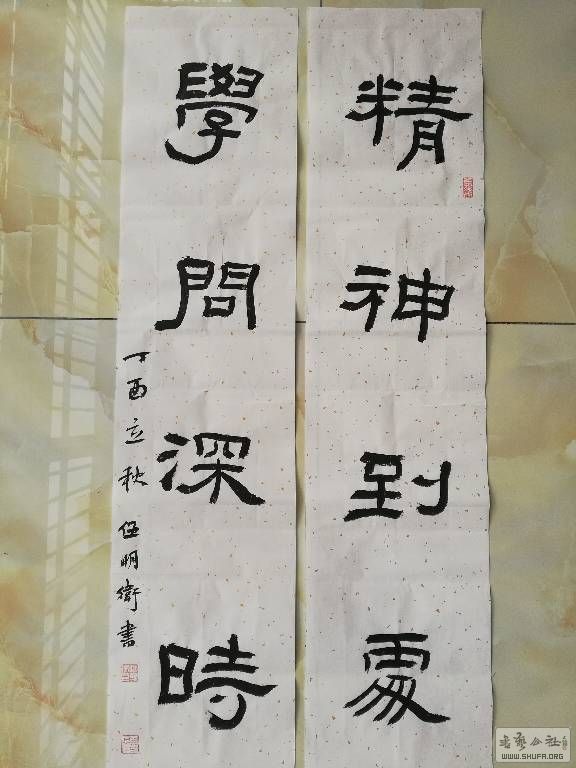 精神到處
學問深時
丁酉立秋 伍明衛書
书艺公社
WWW.SHUFA.ORG